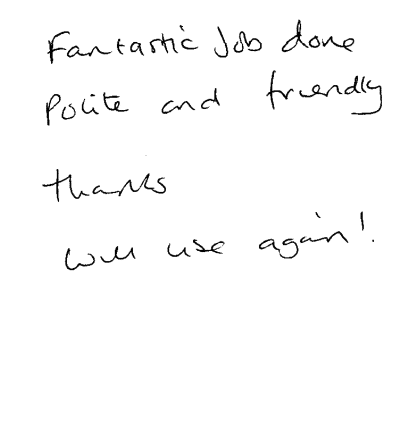 Fantastic Job done
Polite and friendly
thanks
will use again!